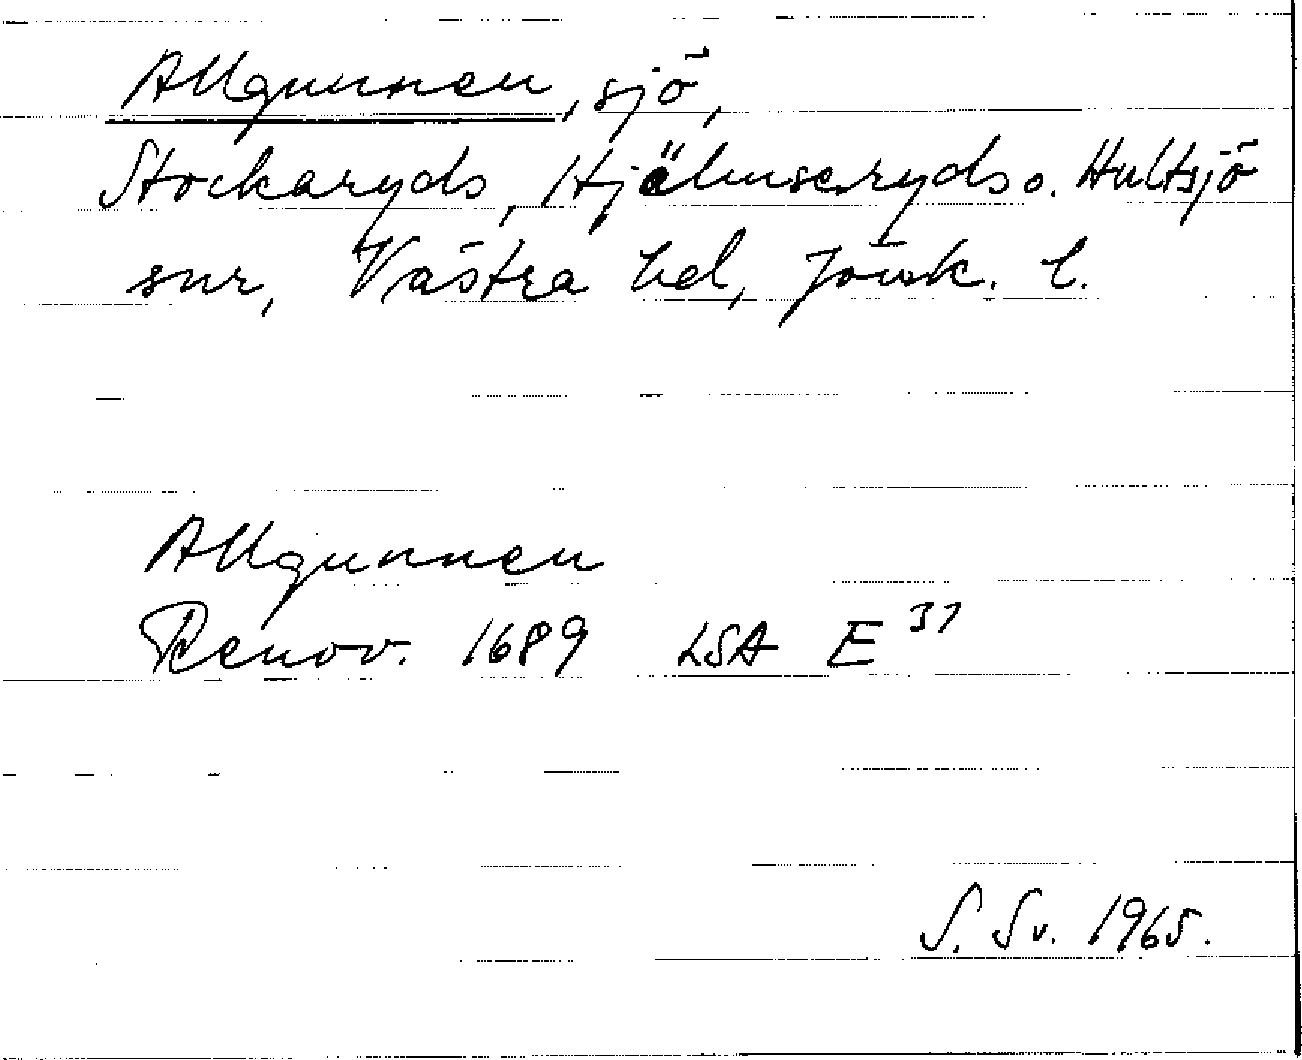 Allgunnen, sjö,
Stockaryds, Hjälmseryds o. Hultsjö
snr, Västra hd, Jönk. l.
Allgunnen
Renov. 1689 LSA E 31
S. Sv. 1965.